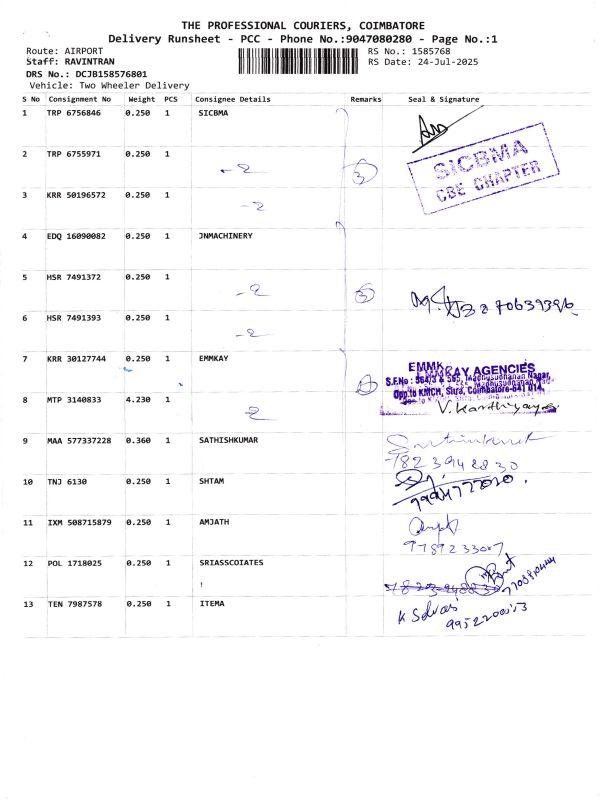 THE PROFESSIONAL COURIERS, COIMBATORE
Delivery Runsheet - PCC - Phone No.:9047080280 - Page No.:1
Route: AIRPORT RS No.: 1585768
Staff: RAVINTRAN RS Date: 24-Jul-2025
DRS No.: DCJB158576801
Vehicle: Two Wheeler Delivery
S No Consignment No Weight PCS Consignee Details Remarks Seal & Signature
1 TRP 6756846 0.250 1 SICBMA
2 TRP 6755971 0.250 1 -2 3 SICBMA
CBE CHAPTER
3 KRR 50196572 0.250 1 -2
4 EDQ 16090082 0.250 1 JNMACHINERY
5 HSR 7491372 0.250 1 -2 3
6 HSR 7491393 0.250 1 -2
7 KRR 30127744 0.250 1 EMMKAY
EMMKAY AGENCIES
S.F.No : 564/3 & 565, Madhusudhanan Nagar,
Opp.to KMCH, Sitra, Coimbatore-641 014.
8 MTP 3140833 4.230 1 2 V. Karthyaya
9 MAA 577337228 0.360 1 SATHISHKUMAR
7823948830
10 TNJ 6130 0.250 1 SHTAM
11 IXM 508715879 0.250 1 AMJATH
9789233007
12 POL 1718025 0.250 1 SRIASSCOIATES
!
13 TEN 7987578 0.250 1 ITEMA K Selvas